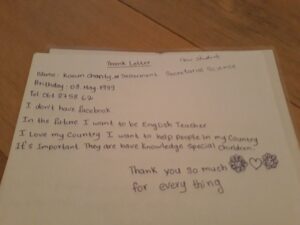 Thank Letter
New student
Name: Koeum Chandy, or Department Secretarial Science
Birthday: 08 May 1993
Tel: 061 8758 62
I don't have facebook
In the future I went to be English Teacher
I Love my Country I want to help people in my Country
It's Important They are have knowledge special children.
Thank you so much
for every thing